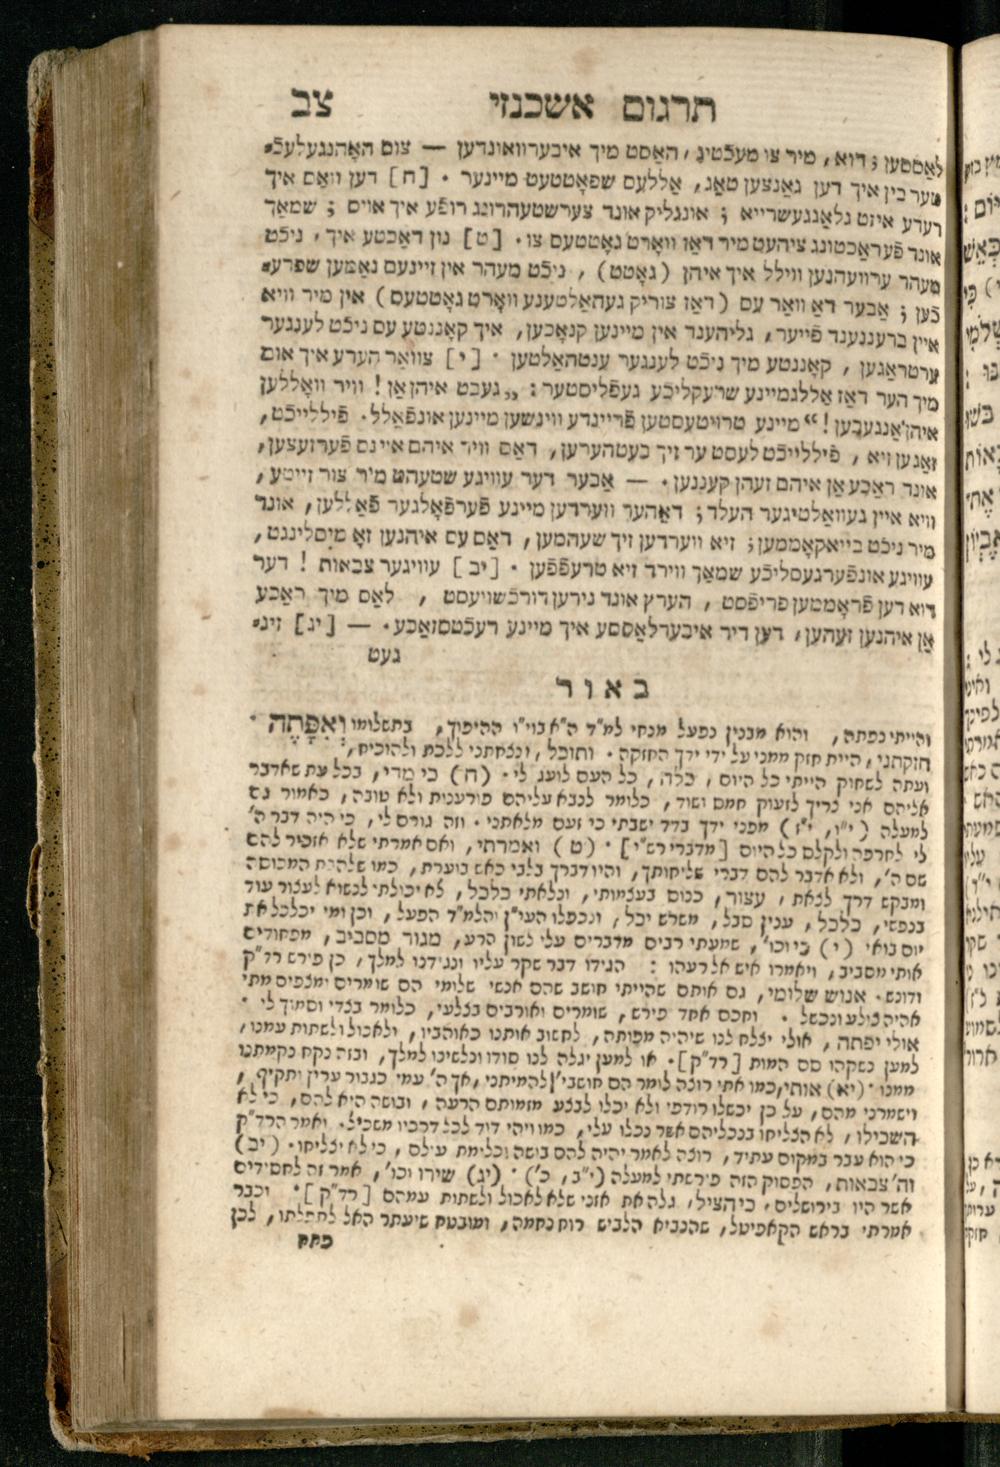 תרגום אשכנזי צב
לאַססען ; דוא, מיר צו מעכֿטיג, האַסט מיך איבערוואונדען — צום האָהנגעלעכֿ⸗
טער בין איך דען גאַנצען טאַג, אַללעס שפּאָטטעט מיינער . [ח] דען וואַס איך
רעדע איזט קלאַגגעשרייא ; אונגליק אונד צערשטעהרונג רופֿע איך אויס ; שמאַך
אונד פֿעראַכטונג ציהעט מיר דאַז וואָרט גאָטטעס צו. [ט] נון דאַכטע איך, ניכֿט
מעהר ערוועהנען ווילל איך איהן (גאָטט) , ניכֿט מעהר אין זיינעם נאַמען שפּרע⸗
כֿען ; אַבער דאַ וואַר עס (דאַז צוריק געהאַלטענע וואָרט גאָטטעס) אין מיר וויא
איין ברעננענד פֿייער, גליהענד אין מיינען קנאָכען, איך קאָננטע עס ניכֿט לענגער
ערטראַגען , קאָננטע מיך ניכֿט לענגער ענטהאַלטען . [י] צוואַר הערע איך אום
מיך הער דאַז אַללגמיינע שרעקליכֿע געפֿליסטער : „געבט איהן אַן ! וויר וואָללען
איהן אַנגעבען !“ מיינע טרויטעסטען פֿריינדע ווינשען מיינען אונפֿאַלל. פֿיללייכֿט,
זאַגען זיא , פֿיללייכֿט לעסט ער זיך בעטהערען, דאַס וויר איהם איינס פֿערזעצען,
אונד ראַכע אַן איהם זעהן קעננען. — אַבער דער עוויגע שטעהט מיר צור זייטע,
וויא איין געוואַלטיגער העלד ; דאַהער ווערדען מיינע פֿערפֿאָלגער פֿאַללען, אונד
מיר ניכֿט בייאקאָממען ; זיא ווערדען זיך שעהמען, דאַס עס איהנען זאָ מיסלינגט,
עוויגע אונפֿערגעסליכֿע שמאַך ווירד זיא טרעפֿפֿען . [יב] עוויגער צבאות ! דער
דוא דען פֿראָממען פּריפֿסט , הערץ אונד נירען דורכֿשויעסט , לאַס מיך ראַכע
אַן איהנען זעהען, דען דיר איבערלאַססע איך מיינע רעכֿטסזאַכע. — [יג] זינ⸗
געט
באור
והייתי נפתה, והוא מבנין נפעל מנחי למ"ד ה"א בוי"ו ההיפוך, בתשלומו וְאִפָּתֶה .
חזקתני, היית חזק ממני על ידי ידך החזקה . ותוכל, ונצחתני ללכת ולהוכיח,
ועתה לשחוק הייתי כל היום , כלה, כל העם לועג לי. (ח) כי מדי, בכל עת שאדבר
אליהם אני צריך לזעוק חמס ושוד, כלומר לנבא עליהם פורענות ולא טובה, כאמור גם
למעלה (י"ו, י"ז) מפני ידך בדד ישבתי כי זעם מלאתני . וזה גורם לי, כי היה דבר ה'
לי לחרפה ולקלס כל היום [מדברי רש"י] . (ט) ואמרתי, ואם אמרתי שלא אזכיר להם
שם ה', ולא אדבר להם דברי שליחותך, והיו דבריך בלבי כאש בוערת, כמו שלהבת המכוסה
ומבקש דרך לצאת , עצור, כנוס בעצמותי, ונלאתי כלכל, לא יכולתי לנשוא לעצור עוד
בנפשי, כלכל, ענין סבל, משרש יכל, ונכפלו העי"ן והלמ"ד הפעל, וכן ומי יכלכל את
יום בואי (י) כי וכו', שמעתי רבים מדברים עלי לשון הרע, מגור מסביב, מפחידים
אותי מסביב, ויאמרו איש אל רעהו : הגידו דבר שקר עליו ונגידנו למלך, כן פירש רד"ק
ודונש. אנוש שלומי, גם אותם שהייתי חושב שהם אנשי שלומי הם שומרים ומצפים מתי
אהיה צולע ונכשל . וחכם אחד פירש, שומרים ואורבים בצלעי, כלומר בצדי וסמוך לי .
אולי יפתה , אולי יצלח לנו שיהיה מפותה, לחשוב אותנו כאוהביו, ולאכול ולשתות עמנו,
למען נשקהו סם המות [רד"ק]. או למען יגלה לנו סודו ונלשינו למלך, ובזה נקח נקמתנו
ממנו . (יא) אותי, כמו אתי רוצה לומר הם חושבי' להמיתני, אך ה' עמי כגבור עריץ ותקיף ,
וישמרני מהם, על כן יכשלו רודפי ולא יכלו לבצע מזמותם הרעה , ובושה היא להם, כי לא
השכילו , לא הצליחו בנכליהם אשר נכלו עלי, כמו ויהי דוד לכל דרכיו משכיל. ואמר הרד"ק
כי הוא עבר במקום עתיד, רוצה לאמר יהיה להם בושה וכלימת עולם , כי לא יצליחו. (יב)
וה' צבאות, הפסוק הזה פירשתי למעלה (י"ב, כ') . (יג) שירו וכו', אמר זה לחסידים
אשר היו בירושלים, כי הציל, גלה את אזני שלא לאכול ולשתות עמהם [רד"ק]. וכבר
אמרתי בראש הקאפיטל, שהנביא הלביש רוח נחמה, ומובטח שיעתר האל לתפלתו, לכן
פתח